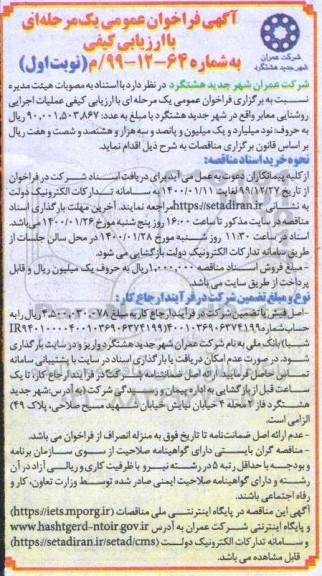 آگهی فراخوان عمومی یک مرحله‌ای
با ارزیابی کیفی
به شماره ۶۴-۱۲-۹۹/م (نوبت اول)
شرکت عمران
شهر جدید هشتگرد
شرکت عمران شهر جدید هشتگرد در نظر دارد با استناد به مصوبات هیئت مدیره
نسبت به برگزاری فراخوان عمومی یک مرحله ای با ارزیابی کیفی عملیات اجرایی
روشنایی معابر واقع در شهر جدید هشتگرد با مبلغ به عدد: ۹۰,۰۰۱,۵۰۳,۸۶۷ ریال
به حروف: نود میلیارد و یک میلیون و پانصد و سه هزار و هشتصد و شصت و هفت ریال
بر اساس قانون برگزاری مناقصات به شرح ذیل اقدام نماید.
نحوه خرید اسناد مناقصه:
از کلیه پیمانکاران دعوت به عمل می آید برای دریافت اسناد شرکت در فراخوان
از تاریخ ۹۹/۱۲/۲۷ لغایت ۱۴۰۰/۰۱/۱۱ به سامانه تدارکات الکترونیک دولت
به نشانی https://setadiran.ir مراجعه نمایند. آخرین مهلت بارگذاری اسناد
مناقصه در سایت مذکور تا ساعت ۱۶:۰۰ روز پنج شنبه مورخ ۱۴۰۰/۰۱/۲۶ می‌باشد.
اسناد در ساعت ۱۱:۳۰ روز شنبه مورخ ۱۴۰۰/۰۱/۲۸ در محل سالن جلسات از
طریق سامانه تدارکات الکترونیک دولت بازگشایی می شود.
- مبلغ فروش اسناد مناقصه ۱,۰۰۰,۰۰۰ ریال به حروف یک میلیون ریال و قابل
پرداخت از طریق سایت می باشد.
نوع و مبلغ تضمین شرکت در فرآیند ارجاع کار:
-اصل فیش یا تضمین شرکت در فرآیند ارجاع کار به مبلغ ۴,۵۰۰,۰۳۰,۰۷۸ ریال را به
حساب شماره ۴۰۰۱۰۳۶۹۰۶۳۷۴۱۹۹ (IR۹۴۰۱۰۰۰۰۴۰۰۱۰۳۶۹۰۶۳۷۴۱۹۹
شبا) بانک ملی به نام شرکت عمران شهر جدید هشتگرد واریز و در سایت بارگذاری
شود. در صورت عدم امکان دریافت یا بارگذاری اسناد در سایت با پشتیبانی سامانه
تماس حاصل فرمایید. ارائه اصل ضمانتنامه شرکت در فرآیند ارجاع کار، تا یک
ساعت قبل از بازگشایی به اداره پیمان و رسیدگی شرکت (به آدرس: شهر جدید
هشتگرد فاز ۲ محله ۴ خیابان نیایش خیابان شهید مسیح صلاحی، پلاک ۴۹)
الزامی است.
- عدم ارائه اصل ضمانت‌نامه تا تاریخ فوق به منزله انصراف از فراخوان می باشد.
- مناقصه گران بایستی دارای گواهینامه صلاحیت از سوی سازمان برنامه
و بودجه با حداقل رتبه ۵ در رشته نیرو با ظرفیت کاری و ریالی آزاد در آن
رشته و دارای گواهینامه صلاحیت ایمنی صادر شده توسط وزارت تعاون، کار و
رفاه اجتماعی باشند.
آگهی این مناقصه در پایگاه اینترنتی ملی مناقصات (https://iets.mporg.ir)
و پایگاه اینترنتی شرکت عمران به آدرس www.hashtgerd-ntoir.gov.ir
و سامانه تدارکات الکترونیک دولت (https://setadiran.ir/setad/cms)
قابل مشاهده می باشد.